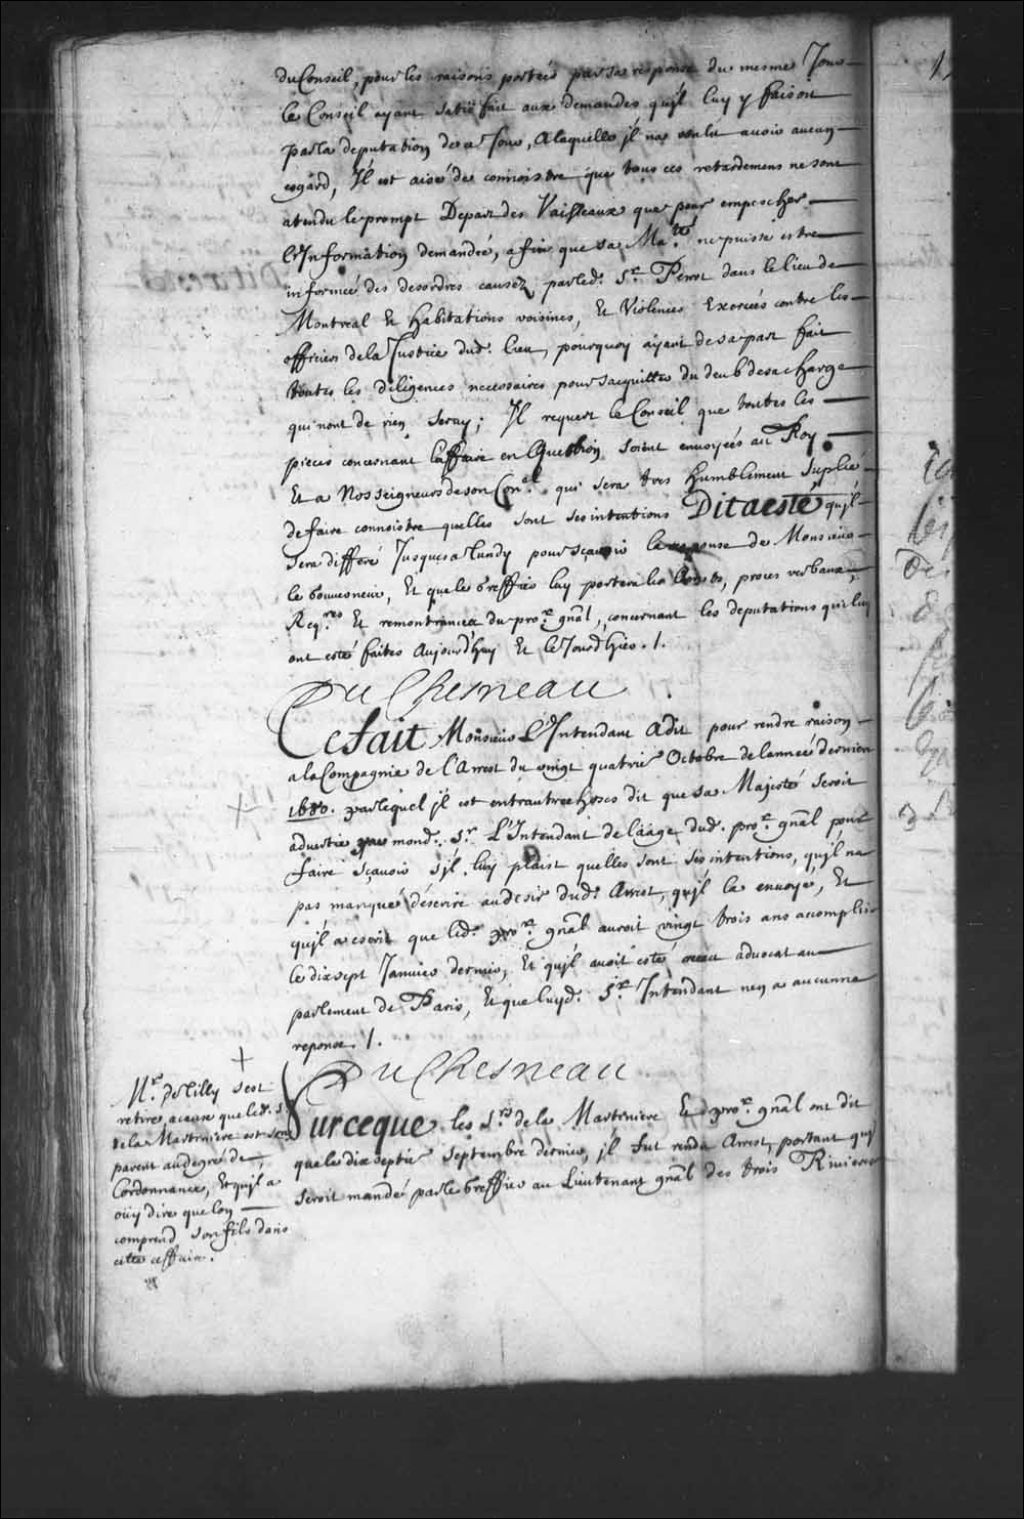 du Conseil, pour les raisons portées par sa response du mesme Jour
le Conseil ayant satisfait aux demandes qu'jl luy y faisoit
par la deputation de ce Jour, a laquelle jl na voulu avoir aucun
esgard, Il est aisé de connoistre que tous ces retardemens ne sont
atendu le prompt Depart des Vaisseaux que pour empescher
l'Information demandée, afin que sa Ma.té ne puisse estre
informée des desordres causez par led. S.r Perrot dans le lieu de
Montreal Et habitations voisines, Et Violences Exercées contre les
officiers de la Justice dud. lieu, pourquoy ayant de sa part fait
toutes les diligences necessaires pour sacquitter du deub de sa charge
qui nont de rien seruy; Il requert le Conseil que toutes les
pieces concernant l'affaire en question soient envoyées au Roy
Et a Nosseigneurs de son Con.el qui sera tres humblement suplié
de faire connoistre quelles sont ses intentions Dit a esté qu'jl
sera differé Jusques a lundy pour sçavoir la response de Monsieur
le Gouverneur, Et que le Greffier luy portera les , proces verbaux,
Req.res Et remontrances du pro.r gñal, concernant les deputations qui luy
ont esté faites Aujourd'huy Et le Jourd'hier ./.
DuChesneau
Ce fait Monsieur L'Intendant A dit pour rendre raison
a la Compagnie de l'Arrest du vingt quatrie Octobre de lannée derniere
1680. par lequel jl est entrautres choses dit que sa Majesté seroit
aduertie par mond. Sr. L'Intendant de l'aage dud. pro.r gñal pour
faire sçavoir s'jl luy plaist quelles sont ses intentions, qu'jl na
pas manqué d'escrire au desir dud. Arrest, qu'jl la envoyé, Et
qu'jl a escrit que led. pro.r gñal auroit vingt trois ans accomplis
le dix sept Janvier dernier, Et qu'jl avoit esté receu advocat au
parlement de Paris, Et que luyd. S.r Intendant nen a aucunne
reponse ./.
DuChesneau
Sur ce que les S.rs de la Martiniere Et pro.r gñal ont dit
que le dix septie Septembre dernier, jl fut rendu Arrest, portant qu'jl
seroit mandé par le Greffier au Lieutenant gñal des trois Rivieres
+
Mr. de Tilly s'est
retiré a cause que led. S.r
de la Martiniere est son
parent au degré de
l'ordonnance, Et qu'jl a
oüy dire que lon
comprend son fils dans
cette affaire.